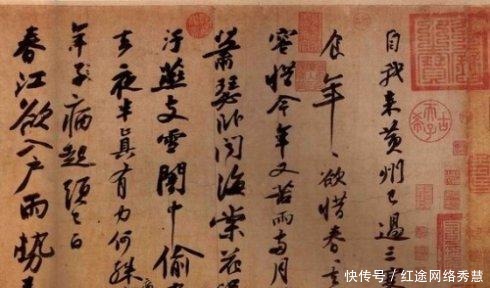 自我來黃州已過三寒
食年〻欲惜春〻
容惜今年又苦雨兩月
蕭瑟卧聞海棠花
汙燕支雪闇中偷
去夜半真有力何殊
年子病起頭已白
春江欲入戶雨勢
古稀天子
快传号 / 红途网络秀慧